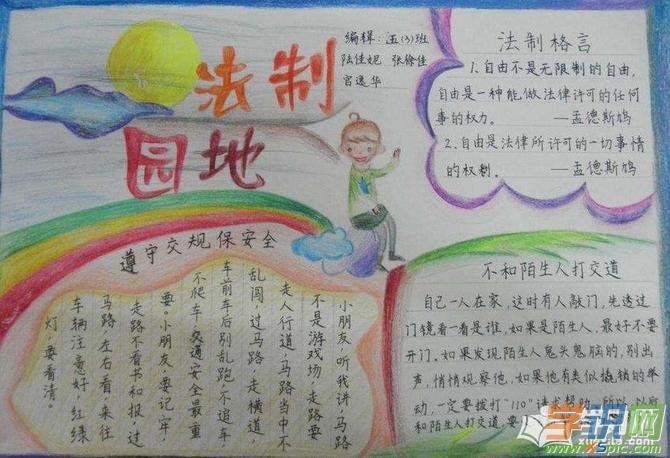 法制
园地
编辑：五(3)班
陆佳妮 张徐佳
宫逸华
法制格言
1.自由不是无限制的自由，
自由是一种能做法律许可的任何
事的权力。 —孟德斯鸠
2.自由是法律所许可的一切事情
的权利。 —孟德斯鸠
遵守交规保安全
小朋友，听我讲，马路
不是游戏场，走路要
走人行道，马路当中不
乱闯，过马路，走横道，
车前车后别乱跑，不追车
不爬车，交通安全最重
要。小朋友，要记牢，
走路不看书和报，过
马路，左右看，来往
车辆注意好，红绿
灯，要看清。
不和陌生人打交道
自己一人在家，这时有人敲门，先透过
门镜看一看是谁，如果是陌生人，最好不要
开门，如果发现陌生人鬼头鬼脑的，别出
声，悄悄观察他，如果他有类似撬锁的举
动，一定要拨打“110”请求帮助，所以，以后
和陌生人打交道，要
学识网